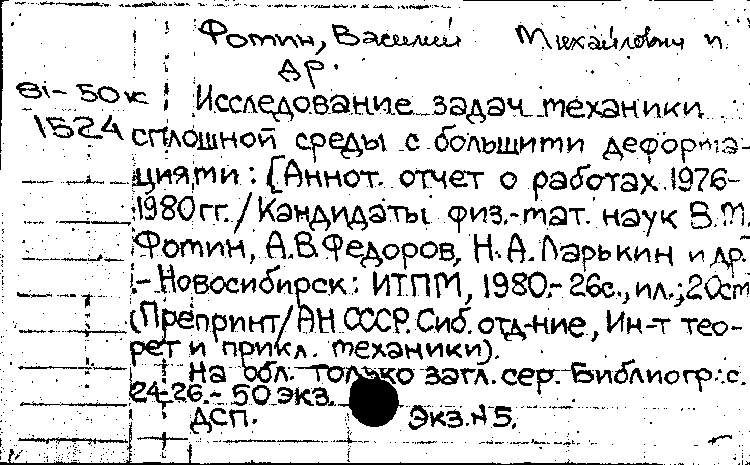 Фотин, Василий Михайлович и др.
81-50к
1524
Исследование задач механики
сплошной среды с большими деформа-
циями: [Аннот. отчет о работах 1976-
1980 гг. / Кандидаты физ.-мат. наук В.М.
Фотин, А.В. Федоров, Н.А. Ларькин и др.
.- Новосибирск: ИТПМ, 1980.- 26с., ил.; 20см
(Препринт/АН СССР. Сиб. отд-ние, Ин-т тео-
рет и прикл. механики).
На обл. только загл. сер. Библиогр.: с.
24-26.- 50 экз.
ДСП. Экз. №5.